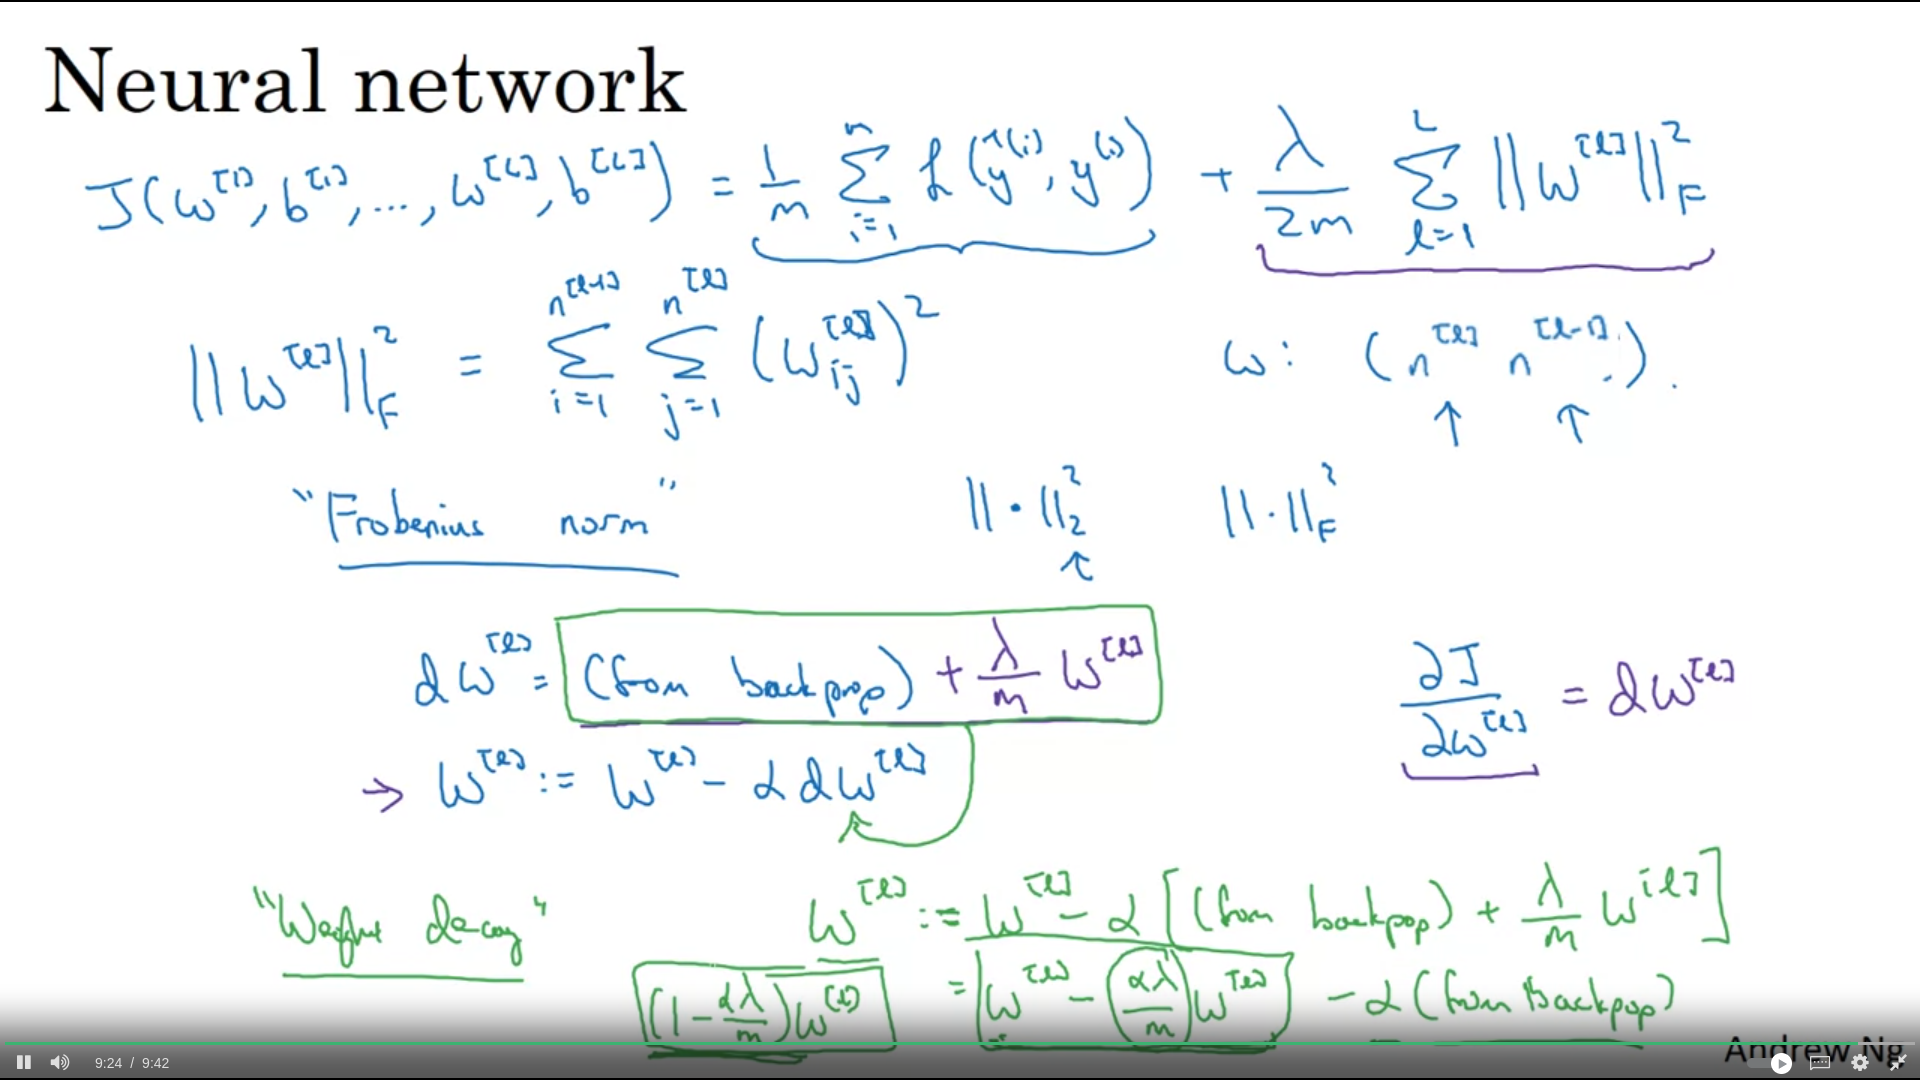 Neural network
J(w^[1], b^[1], ..., w^[L], b^[L]) = 1/m ∑_{i=1}^{m} L(ŷ^(i), y^(i)) + λ/2m ∑_{l=1}^{L} ||w^[l]||_F^2
||w^[l]||_F^2 = ∑_{i=1}^{n^[l-1]} ∑_{j=1}^{n^[l]} (w_ij^[l])^2 w: (n^[l] n^[l-1]).
"Frobenius norm" ||·||_2^2 ||·||_F^2
dw^[l] = (from backprop) + λ/m w^[l] ∂J/∂w^[l] = dw^[l]
→ w^[l] := w^[l] - α dw^[l]
"Weight decay" w^[l] := w^[l] - α [(from backpop) + λ/m w^[l]]
(1 - αλ/m) w^[l] = w^[l] - αλ/m w^[l] - α (from backpop)
Andrew Ng
9:24 / 9:42